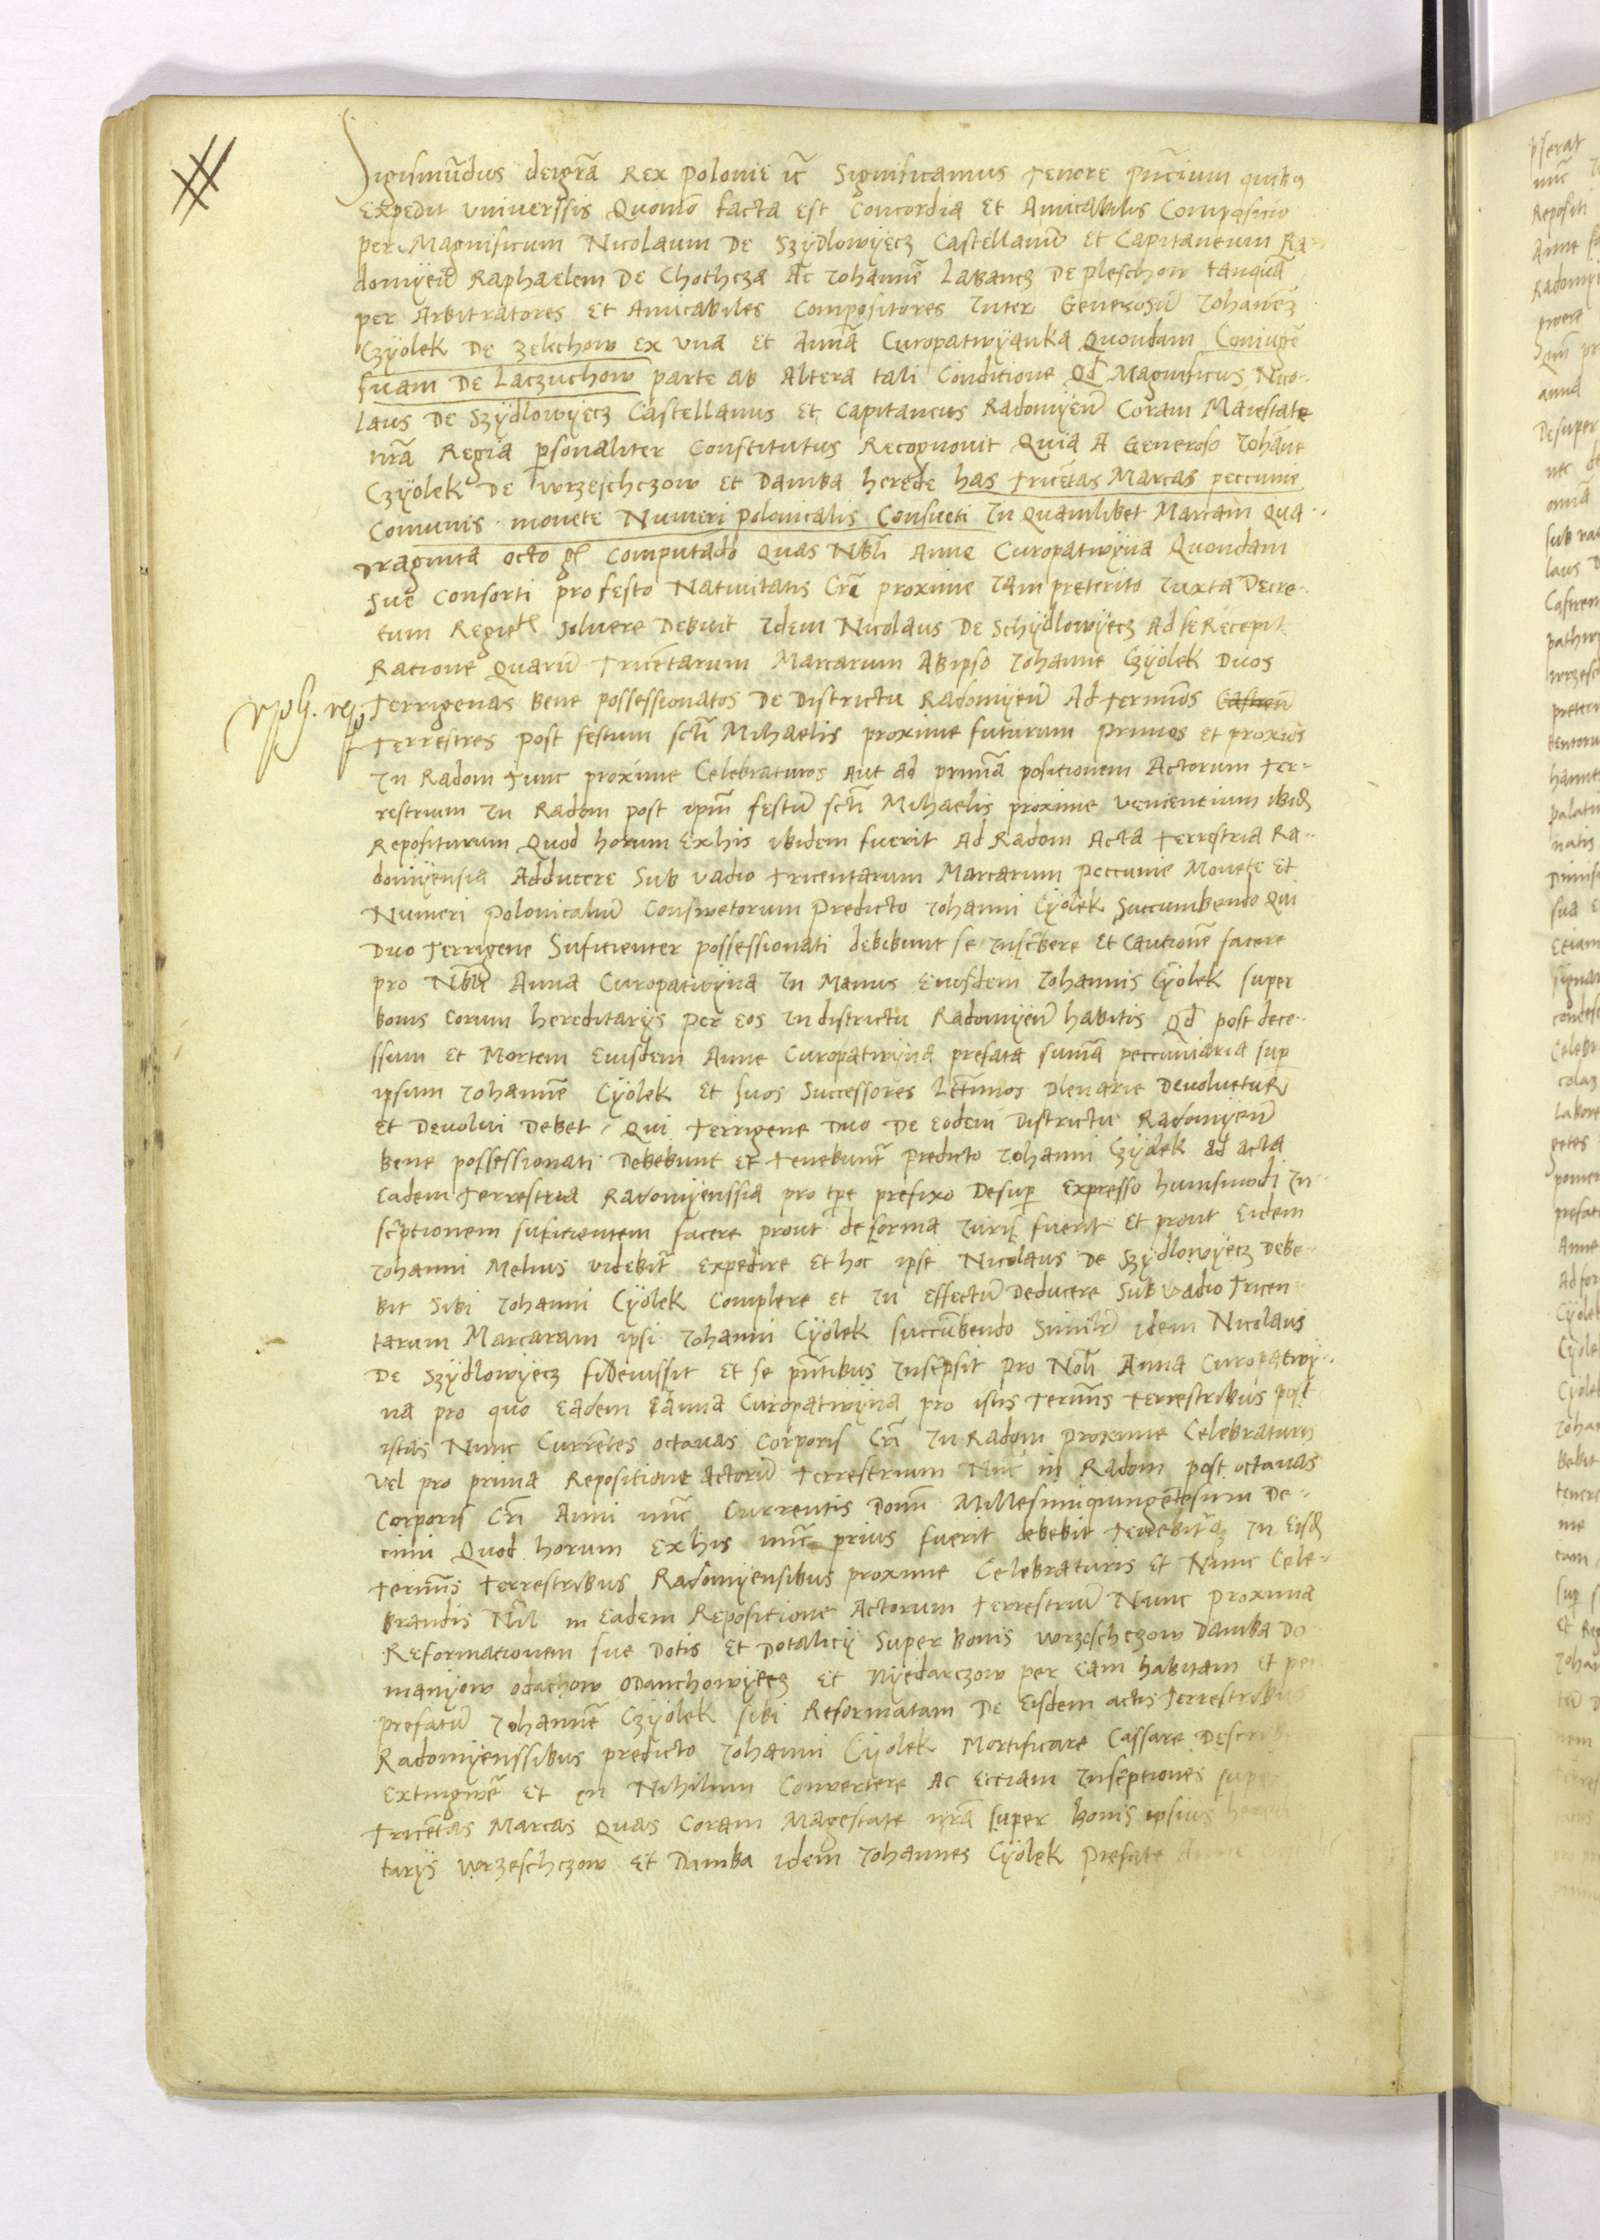 Sigismūdus deigrā Rex polonie ic̄ Significamus tenore pn̄cium quibus
Expedit vniverssis Quomō facta est Concordia et Amicabilis Compositio
per Magnificum Nicolaum De Szÿdlowÿecz Castellanū et Capitaneum Ra
domÿen̄ Raphaelem De Chothcza Ac Johannē Labancz De pleschow tanquā
per Arbitratores et Amicabiles Compositores Inter Generosū Johanēz
Czÿolek De Zelechow ex vna et Annā Curopatwÿanka Quondam Coniugē
suam De Laczuchow parte ab Altera tali Conditione Qd Magnificus Nico-
laus De Szÿdlowÿecz Castellanus et Capitaneus Radomÿen̄ Coram Maiestate
nrā Regia psonaliter Constitutus Recognovit Quia A Generoso Johāne
Czÿolek De Wrzeschczow et Damba herede has tricētas Marcas peccunie
Comunis monete Numeri polonicalis Consueti In Quamlibet Marcam Qua-
draginta octo gl Computādo Quas Nbli Anne Curopatwÿna Quondam
sue Consorti pro festo Nativitatis Cri proxime Iam preterito Iuxta Decre-
tum Regie solvere Debuit Idem Nicolaus De Schÿdlowÿecz Ad se Recepit
Racione Quarū tricētarum Marcarum Ab ipso Johanne Czÿolek Duos
terrigenas bene possessionatos De Districtu Radomÿen̄ Ad terminos Castren̄
terrestres post festum scti Mihaelis proxime futurum primos et proxios
In Radom tunc proxime Celebraturos aut ad primā positionem Actorum ter-
restrium In Radom post ipm̄ festū scti Mihaelis proxime venientium ibid
Repositurum Quod horum Ex his ibidem fuerit Ad Radom Acta terrestria Ra-
domÿensia Adducere Sub vadio tricentarum Marcarum peccunie Monete et
Numeri polonicaliū Conswetorum predicto Johanni Cÿolek Succumbendo Qui
Duo terrigene Suficienter possessionati debibunt se inscribere et Cautionē facere
pro Nbli Anna Curopatwÿna In Manus Eiusdem Johannis Cÿolek super
bonis eorum hereditarÿs per eos In districtu Radomÿen̄ habitis Qd post dece-
ssum et Mortem Eiusdem Anne Curopatwÿna prefata sumā peccūniaria sup
ipsum Johannē Cÿolek et suos Successores letimos plenarie Devoluetur
et Devolui Debet Qui terrigene duo De eodem Districtu Radomÿen̄
bene possessionati Debebunt et tenebunt predicto Johanni Czÿolek ad acta
Eadem terrestria Radomÿenssia pro tpe prefixo Desup Expresso huiusmodi In
scptionem suficientem facere prout de forma Iuris fuerit et prout Eidem
Johanni Melius videbit expedire et hoc ipse Nicolaus De Szÿdlowÿecz Debe-
bit Sibi Johanni Cÿolek Complere et In effectū Deducere Sub vadio tricen
tarum Marcaram ipsi Johanni Cÿolek succūbendo Similr Idem Nicolaus
De Szÿdlowÿecz fideiussit et se pn̄tibus Inscpsit pro Nbli Anna Curopatwÿ-
na pro quo Eadem Anna Curopatwÿna pro istis terminis terrestribus post
istas Nunc Currētes octavas Corporis Cri In Radom proxime Celebraturis
vel pro prima Repositione actorū terrestrium Nūc in Radom post octavas
Corporis Cri Anni nūc Currentis Domi Millesimiquingētesimi De-
cimi Quod horum ex his nūc prius fuerit debebit tenebitq In Eisd
terminis terrestribus Radomÿensibus proxime Celebraturis et Nunc Cele-
brandis in eadem Repositione Actorum terrestriū Nunc proxima
Reformationem sue Dotis et Dotalicÿ Super bonis Wrzeschczow Damba Do
manÿow odachow odanchowÿecz et nÿedarczow per eam habitam et per
prefatū Johannē Czÿolek sibi Reformatam De Eisdem actis terrestribus
Radomÿenssibus predicto Johanni Cÿolek Mortificare Cassare Describ
Extingwē et in Nihilum Convertere Ac Eciam Inscptiones super
tricētas Marcas Quas Coram Magestate nrā super bonis ipsius heredi
tarÿs Wrzeschczow et Damba idem Johannes Cÿolek prefate Anne